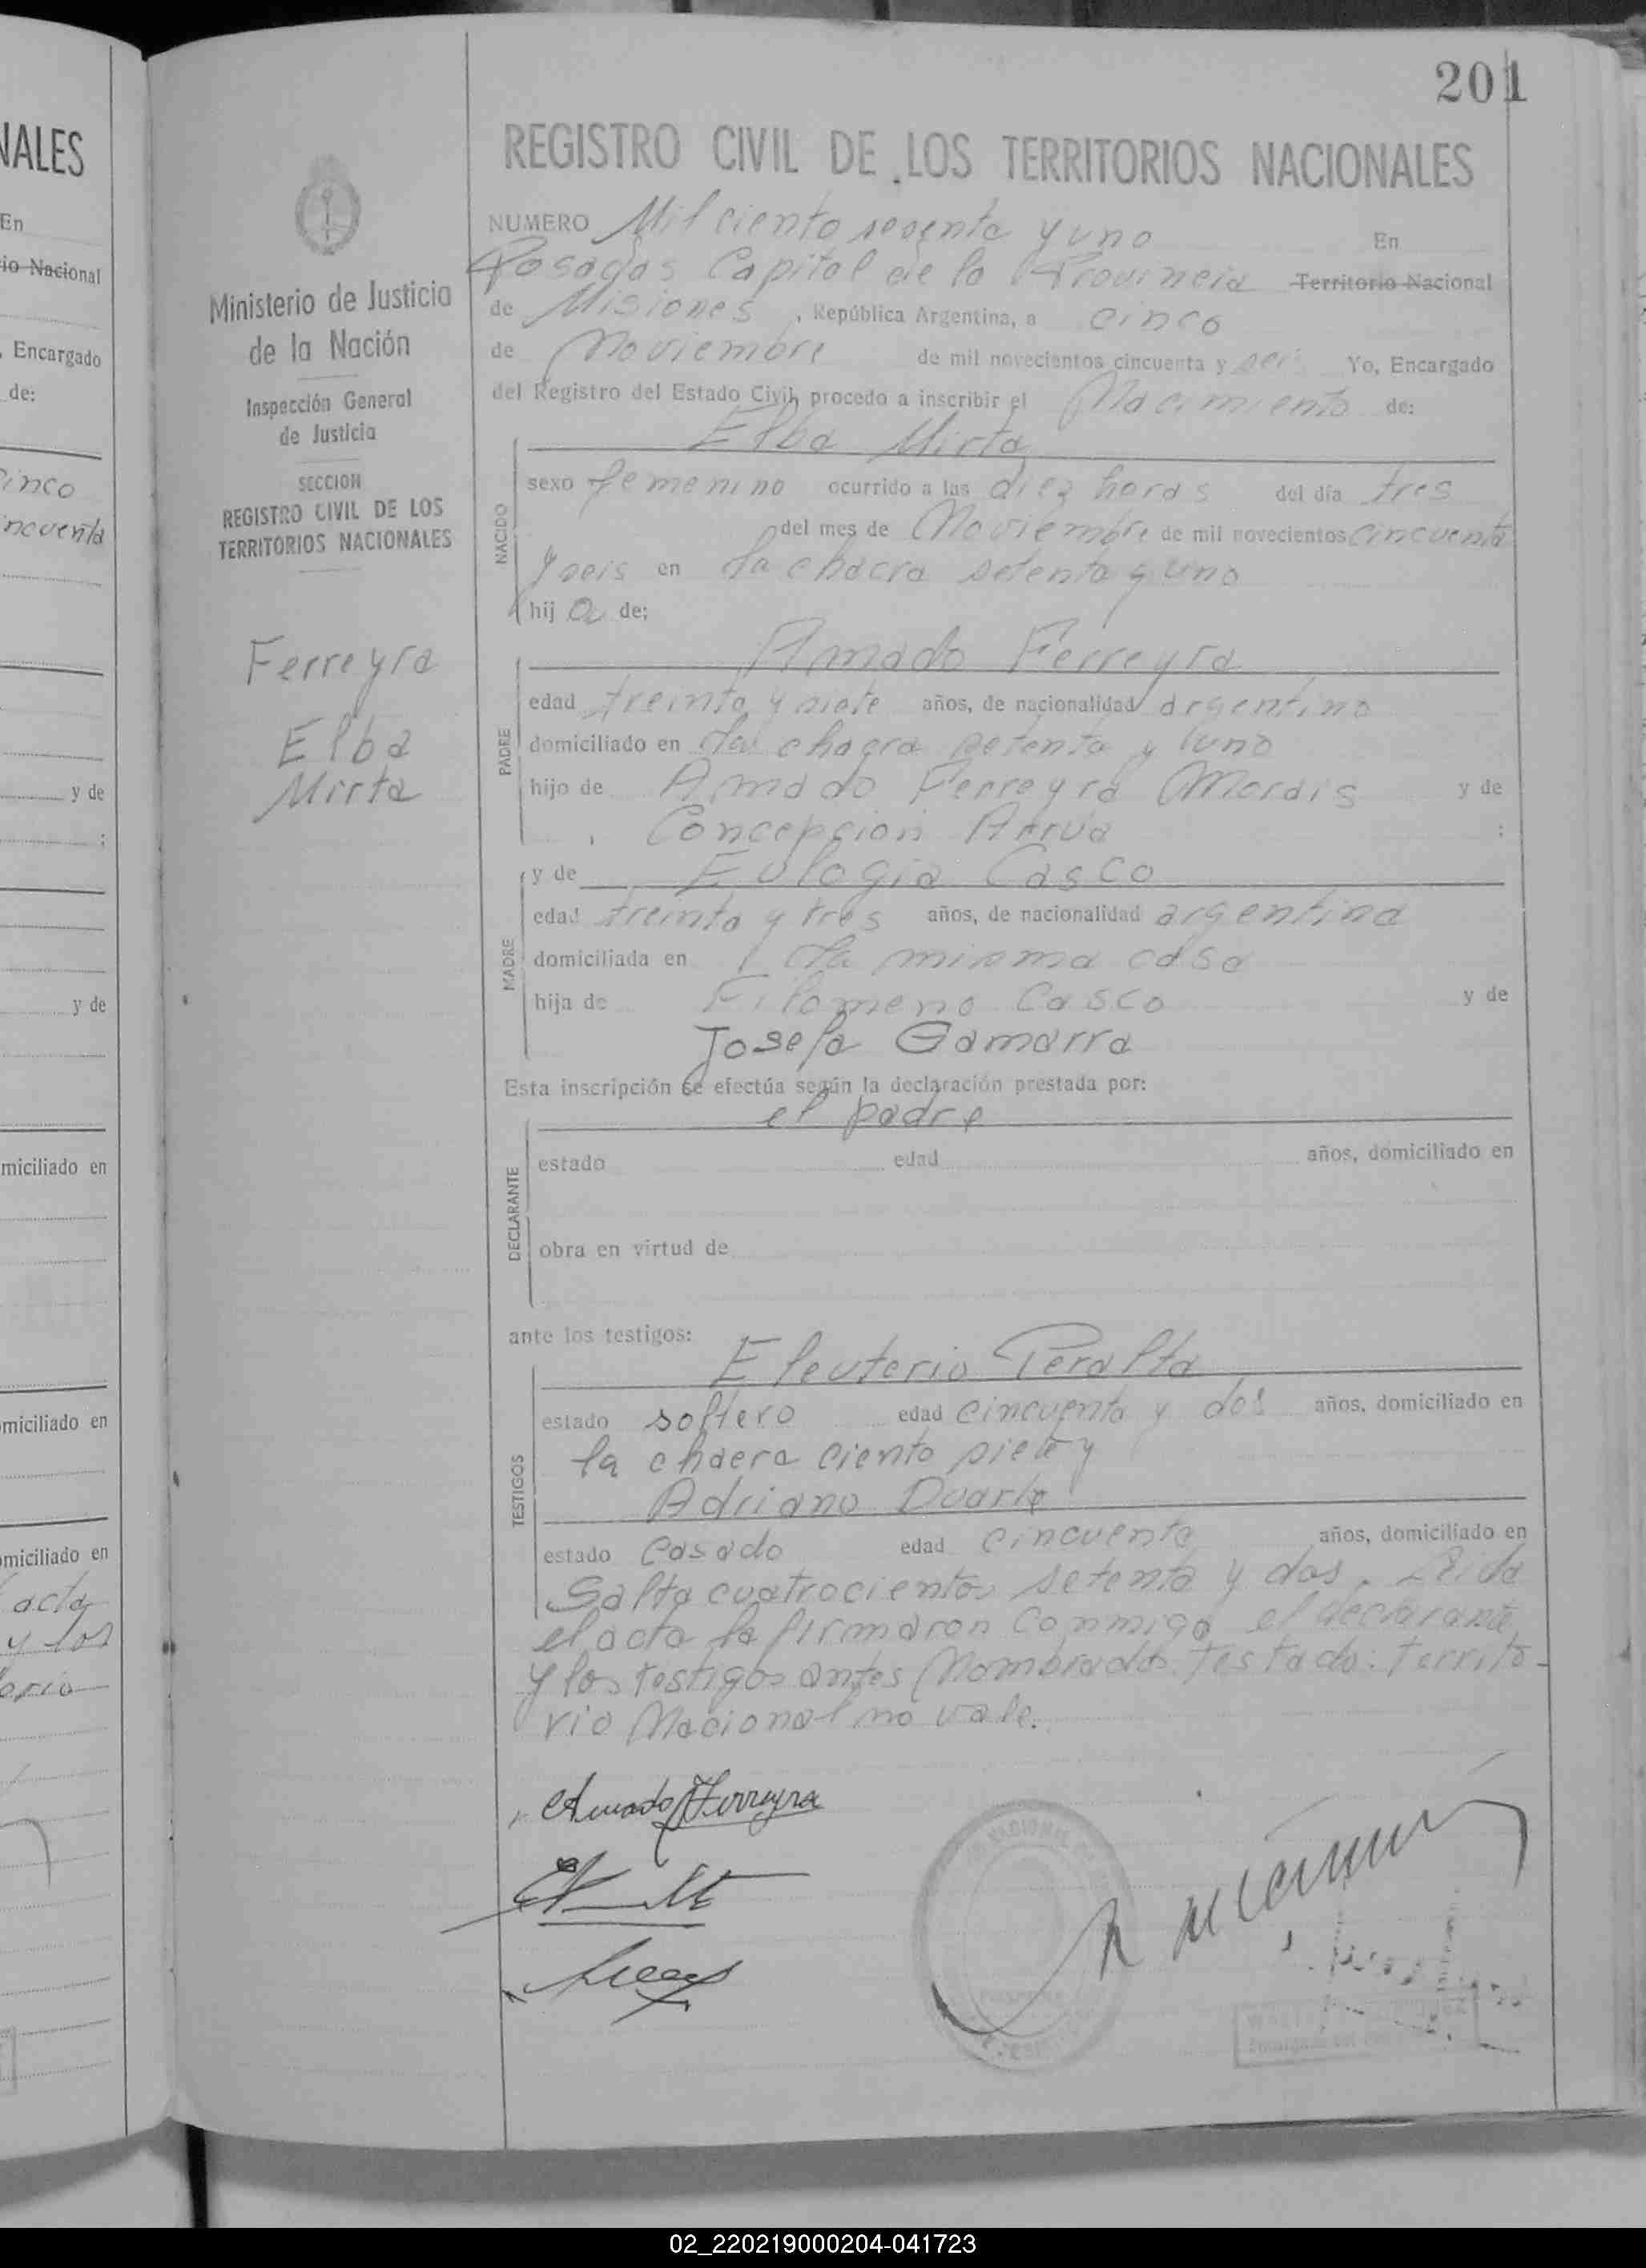 NALES
En
io Nacional
, Encargado
de:
cinco
ncuenta
y de
;
y de
miciliado en
omiciliado en
omiciliado en
acta
y los
orio
201
REGISTRO CIVIL DE LOS TERRITORIOS NACIONALES
Ministerio de Justicia
de la Nación
Inspección General
de Justicia
SECCION
REGISTRO CIVIL DE LOS
TERRITORIOS NACIONALES
Ferreyra
Elba
Mirta
NUMERO Mil ciento sesenta y uno En
Posadas Capital de la Provincia Territorio Nacional
de Misiones, República Argentina, a cinco
de Noviembre de mil novecientos cincuenta y seis Yo, Encargado
del Registro del Estado Civil, procedo a inscribir el Nacimiento de:
Elba Mirta
NACIDO
sexo femenino ocurrido a las diez horas del día tres
del mes de Noviembre de mil novecientos cincuenta
y seis en la chacra setenta y uno
hij a de:
Amado Ferreyra
PADRE
edad treinta y siete años, de nacionalidad argentino
domiciliado en la chacra setenta y uno
hijo de Amado Ferreyra Morais y de
Concepcion Arrua ;
y de Eulogia Casco
MADRE
edad treinta y tres años, de nacionalidad argentina
domiciliada en la misma casa
hija de Filomeno Casco y de
Josefa Gamarra
Esta inscripción se efectúa según la declaración prestada por:
el padre
DECLARANTE
estado edad años, domiciliado en
obra en virtud de
ante los testigos:
Eleuterio Peralta
TESTIGOS
estado soltero edad cincuenta y dos años, domiciliado en
la chacra ciento siete y
Adriano Duarte
estado casado edad cincuenta años, domiciliado en
Salta cuatrocientos setenta y dos. Leida
el acta la firmaron conmigo el declarante
y los testigos antes Nombrados. Testado: Territo-
rio Nacional no vale.
Amado Ferreyra
02_220219000204-041723